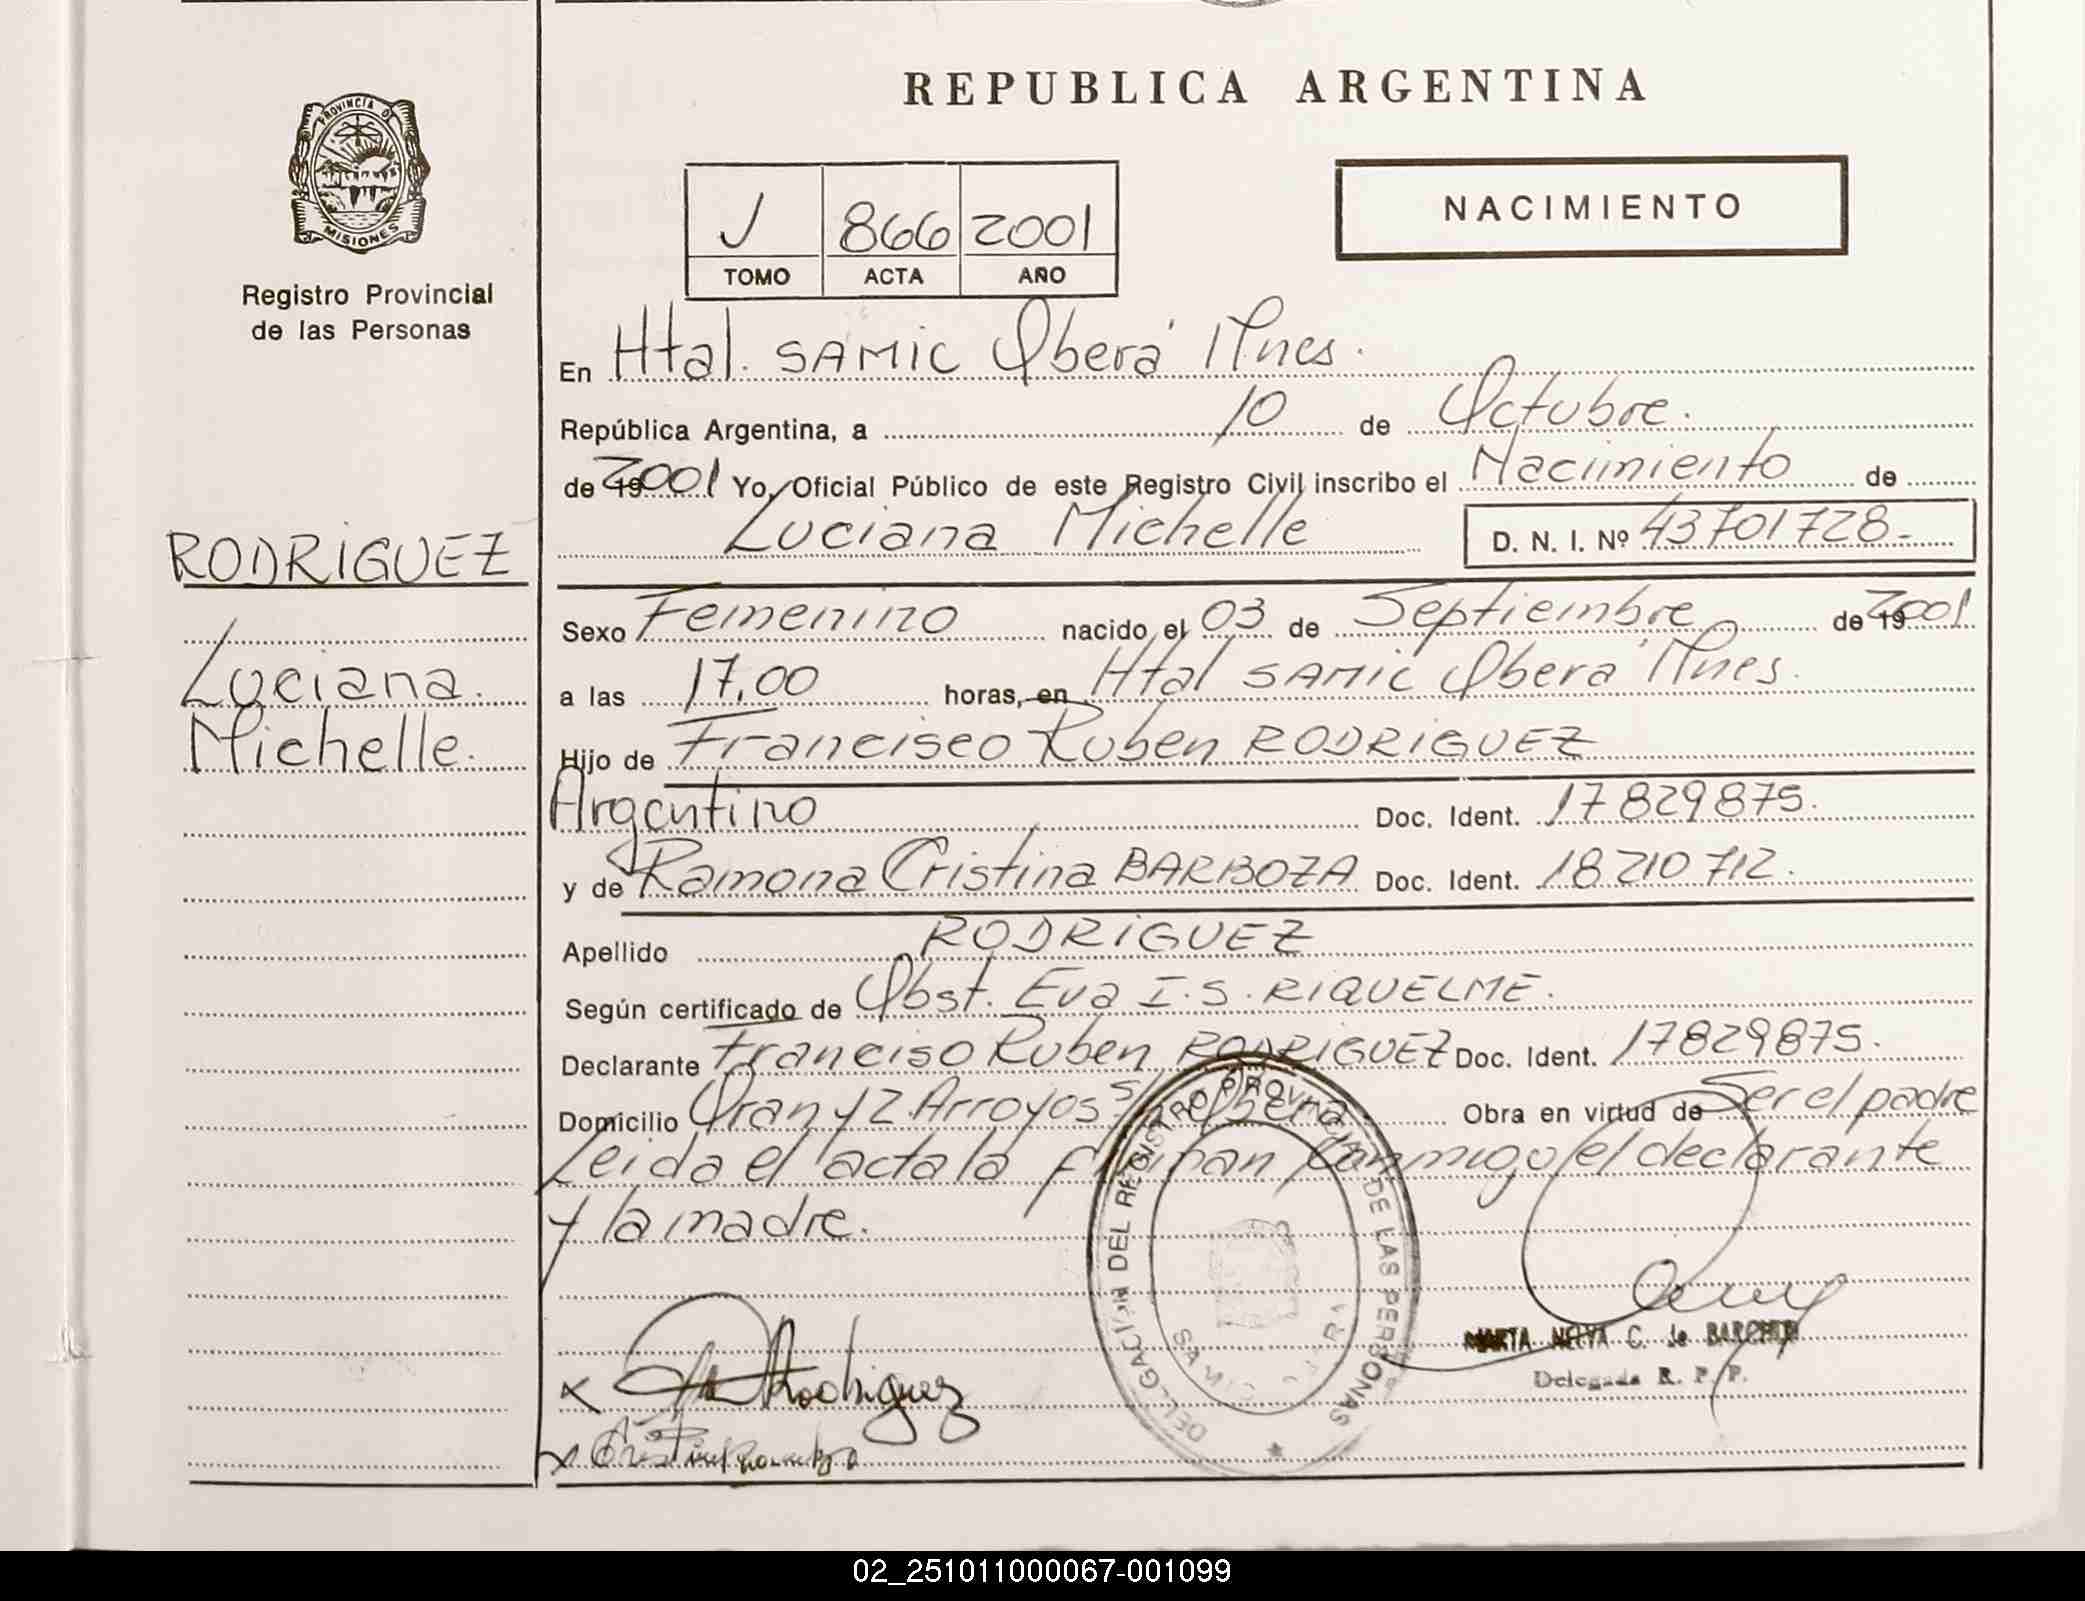 PROVINCIA DE
MISIONES
Registro Provincial
de las Personas
RODRIGUEZ
Luciana.
Michelle.
REPUBLICA ARGENTINA
J 866 2001
TOMO ACTA AÑO
NACIMIENTO
En Htal. SAMIC Oberá Mnes.
República Argentina, a 10 de Octubre.
de 2001 Yo, Oficial Público de este Registro Civil inscribo el Nacimiento de
Luciana Michelle D. N. I. Nº 43701728-
Sexo Femenino nacido el 03 de Septiembre de 2001
a las 17,00 horas, en Htal SAMIC Oberá Mnes.
Hijo de Francisco Ruben RODRIGUEZ
Argentino Doc. Ident. 17829875.
y de Ramona Cristina BARBOZA Doc. Ident. 18210712.
Apellido RODRIGUEZ
Según certificado de Obst. Eva I.S. RIQUELME.
Declarante Franciso Ruben RODRIGUEZ Doc. Ident. 17829875.
Domicilio Oran y 2 Arroyos s/n Oberá. Obra en virtud de Ser el padre
Leida el acta la firman conmigo el declarante
y la madre.
DELEGACION DEL REGISTRO PROVINCIAL DE LAS PERSONAS
MARTA NELVA C. de
Delegada R. P. P.
Rodriguez
02_251011000067-001099